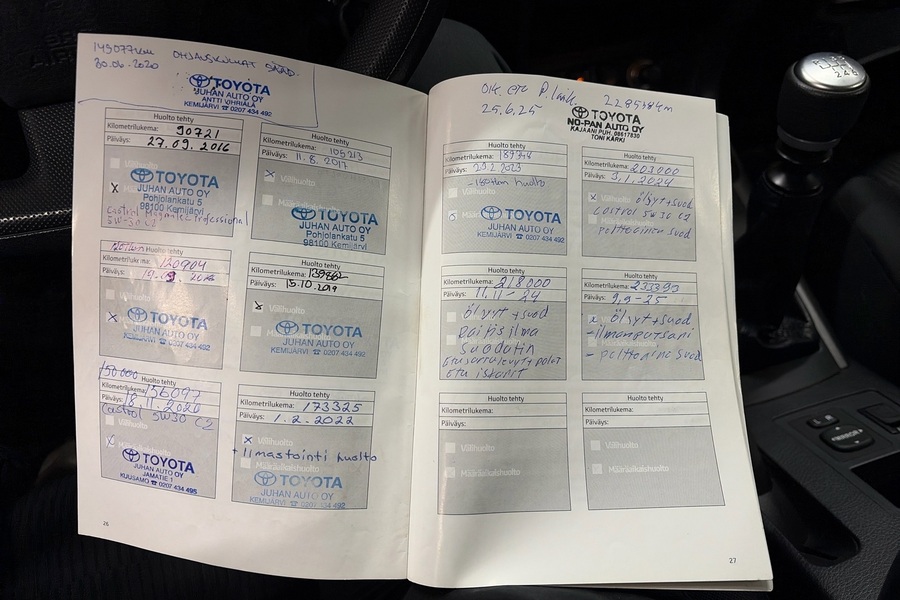 143077km OHJAUSKULMAT SÄÄD.
30.06-2020
TOYOTA
JUHAN AUTO OY
ANTTI VIHRIÄLÄ
KEMIJÄRVI ☎ 0207 434 492
Huolto tehty
Kilometrilukema: 90721
Päiväys: 27.09.2016
Välihuolto
X
TOYOTA
JUHAN AUTO OY
Pohjolankatu 5
98100 Kemijärvi
Castrol Magnatec Professional
5W-30 C2
Huolto tehty
Kilometrilukema: 105213
Päiväys: 11.8.2017
X Välihuolto
TOYOTA
JUHAN AUTO OY
Pohjolankatu 5
98100 Kemijärvi
Huolto tehty
Kilometrilukema: 120904
Päiväys:
X
TOYOTA
JUHAN AUTO OY
KEMIJÄRVI ☎ 0207 434 492
Huolto tehty
Kilometrilukema:
Päiväys: 15.10.2019
X
TOYOTA
JUHAN AUTO OY
KEMIJÄRVI ☎ 0207 434 492
150.000
Huolto tehty
Kilometrilukema: 156097
Päiväys: 18.11.2020
Castrol 5W30 C2
TOYOTA
JUHAN AUTO OY
JÄMÄTIE 1
KUUSAMO ☎ 0207 434 495
Huolto tehty
Kilometrilukema: 173325
Päiväys: 1.2.2022
X Välihuolto
+ ilmastointi huolto
Määräaikaishuolto
TOYOTA
JUHAN AUTO OY
KEMIJÄRVI ☎ 0207 434 492
26
25.6.25
TOYOTA
NO-PAN AUTO OY
KAJAANI PUH. 08617830
TONI KÄRKI
Huolto tehty
Kilometrilukema:
Päiväys: 2023
huolto
TOYOTA
JUHAN AUTO OY
KEMIJÄRVI ☎ 0207 434 492
Huolto tehty
Kilometrilukema: 203000
Päiväys: 3.1.2024
X öljyt+suod
Castrol 5W30 C2
polttoaine suod
Huolto tehty
Kilometrilukema: 218000
Päiväys: 11.11-24
öljyt+suod
Raitisilma
Suodatin
Etujarrulevyt+palat
Etu iskarit
Huolto tehty
Kilometrilukema: 233393
Päiväys: 9.9-25
x öljyt+suod
-ilmanputsari
- polttoaine suod
Huolto tehty
Kilometrilukema:
Päiväys:
Välihuolto
Määräaikaishuolto
Huolto tehty
Kilometrilukema:
Päiväys:
Välihuolto
Määräaikaishuolto
27